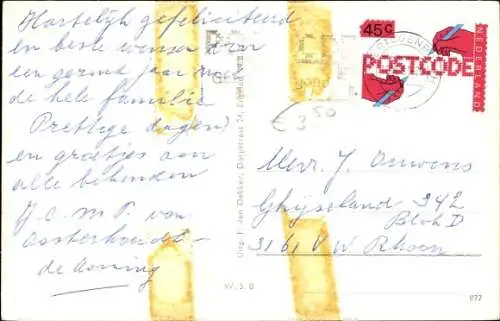 Hartelijk gefeliciteerd
en beste wensen voor
een gezond jaar met
de hele familie
Prettige dagen
en groetjes aan
alle bekenden
J.C.M.P. van
Oosterhoudt-
de Koning
Uitg. F. van Dekker, Dorpstraat 24,
W.S.B
45c
POSTCODE
NEDERLAND
€ 3 50
Mevr. J. Ouwens
Ghijseland 342
Blok D
3161 VW Rhoon
877